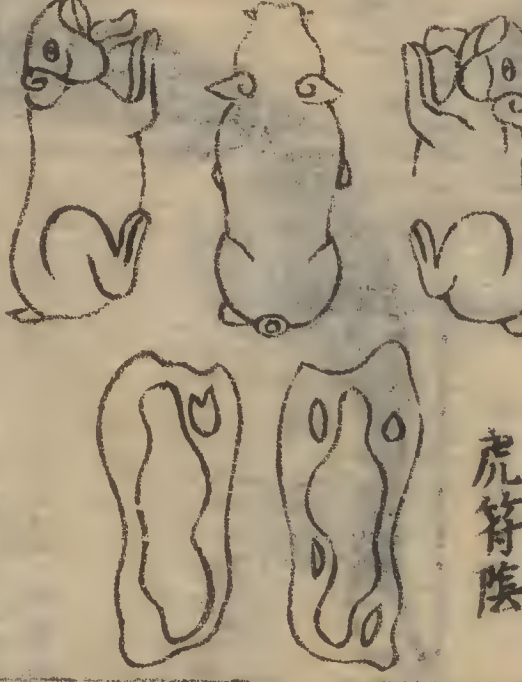 虎符陰